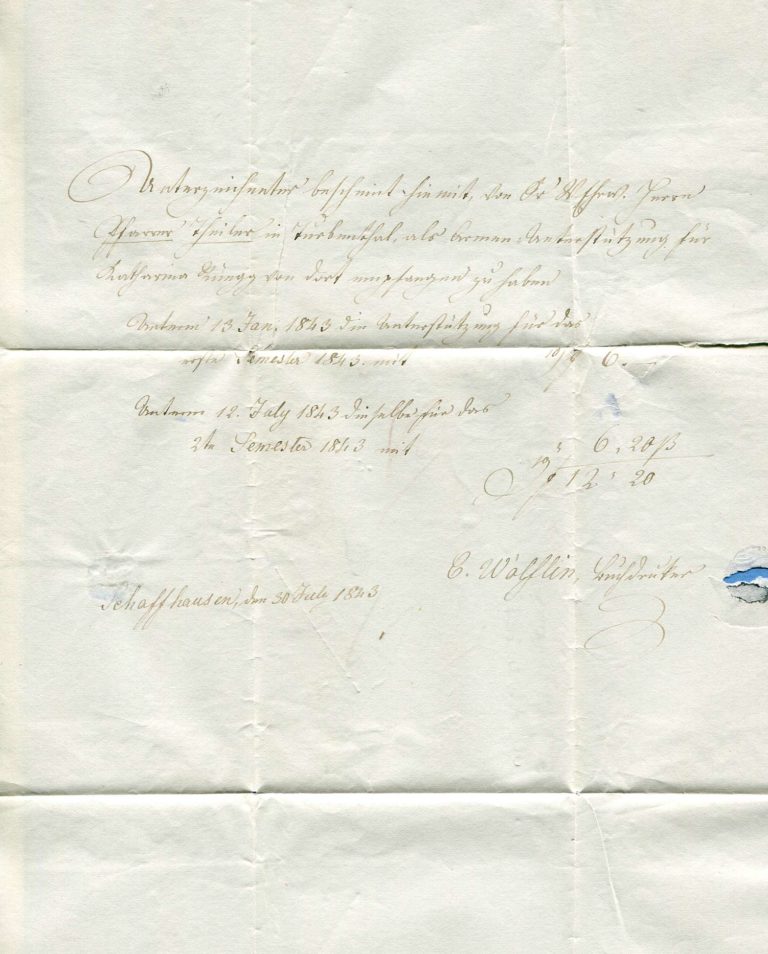 Unterzeichneter bescheint hiemit, von Sr. WEhrw. Herrn
Pfarrer Theiler in Turbenthal, als Armen-Unterstützung für
Katharina Rüegg von dort empfangen zu haben
Unterm 13 Jan. 1843 die Unterstützung für das
erste Semester 1843. mit 6. —
Unterm 12. July 1843 dieselbe für das
2te Semester 1843 mit " 6. 20 ß
12 " 20
E. Wölfflin, Buchdruker
Schaffhausen, den 30 July 1843